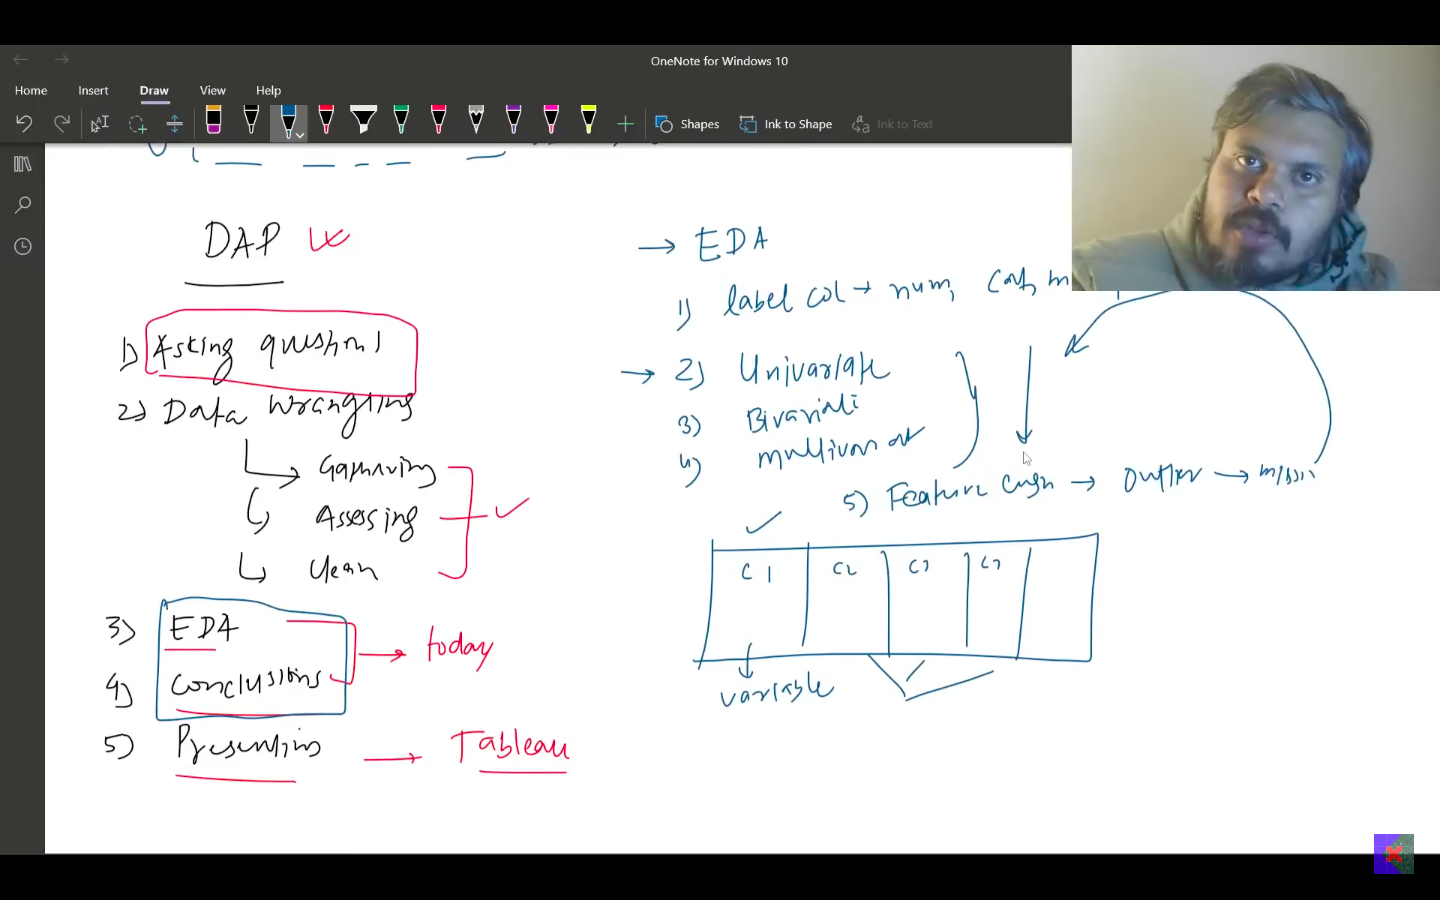 OneNote for Windows 10
Home Insert Draw View Help
Shapes Ink to Shape Ink to Text
DAP
1) Asking questions
2) Data Wrangling
Gathering
Assessing
Clean
3) EDA
4) Conclussions
today
5) Presenting → Tableau
→ EDA
1) label col → num, Cat, m
→ 2) Univariate
3) Bivariate
4) multivariat
5) Feature → outlier → missin
C1 C2 C3
variable